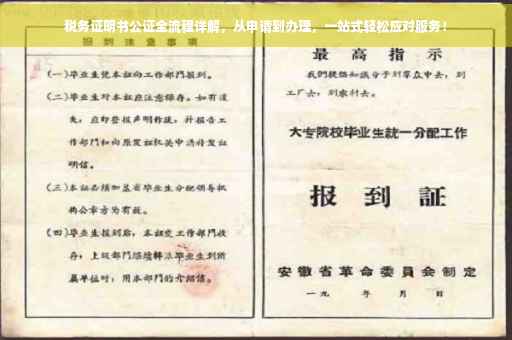 税务证明书公证全流程详解，从申请到办理，一站式轻松应对服务！
报到注意事项
(一)毕业生凭本证向工作部门报到。
(二)毕业生对本证应注意保存。如有遗
失，应即登报声明作废，并报告工
作部门和向原发证机关申请补发证
明信。
(三)本证必须加盖省毕业生分配领导机
构公章方为有效。
(四)毕业生报到后，本证交工作部门收
存；上级部门继续转派毕业生到所
属单位时，用本部门的介绍信。
最高指示
我们提倡知识分子到群众中去，到
工厂去，到农村去。
大专院校毕业生统一分配工作
报到証
安徽省革命委员会制定
一九 年 月 日